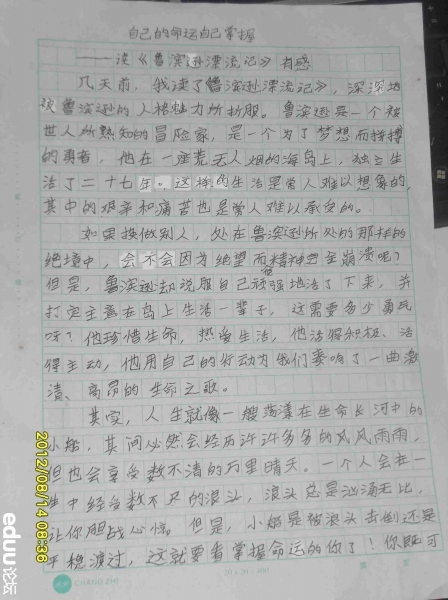 自己的命运自己掌握
——读《鲁滨逊漂流记》有感
几天前，我读了《鲁滨逊漂流记》，深深地
被鲁滨逊的人格魅力所折服。鲁滨逊是一个被
世人所熟知的冒险家，是一个为了梦想而拼搏
的勇者，他在一座荒无人烟的海岛上，独立生
活了二十七年。这样的生活是常人难以想象的，
其中的艰辛和痛苦也是常人难以承受的。
如果换做别人，处在鲁滨逊所处的那样的
绝境中，会不会因为绝望而精神完全崩溃呢？
但是，鲁滨逊却说服自己顽强地活了下来，并
打定主意在岛上生活一辈子，这需要多少勇气
呀？他珍惜生命，热爱生活，他活得积极、活
得主动，他用自己的行动为我们奏响了一曲激
清、高昂的生命之歌。
其实，人生就像一艘荡漾在生命长河中的
小船，其间必然会经历许许多多的风风雨雨，
但也会享受数不清的万里晴天。一个人会在一
生中经受数不尽的浪头，浪头总是汹涌无比，
让你胆战心惊。但是，小船是被浪头击倒还是
平稳渡过，这就要看掌握命运的你了！你既可
2012/08/14 08:36
eduu论坛
CHANG ZHI